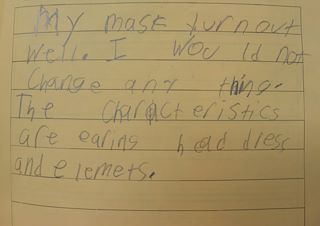 My mask turn out
well. I would not
change any thing.
The characteristics
are earing head dress
and elemets.